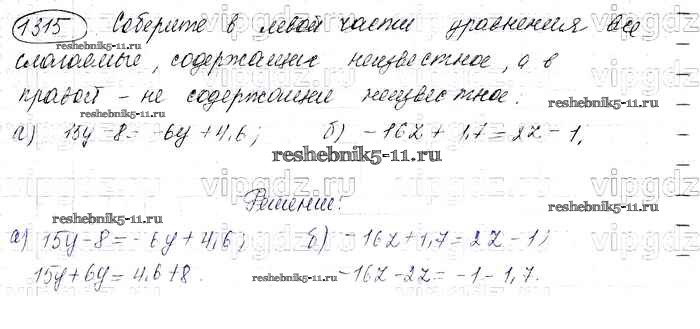 1315 Соберите в левой части уравнения все
слагаемые, содержащие неизвестное, а в
правой - не содержащие неизвестное:
а) 15y - 8 = -6y + 4,6; б) -16z + 1,7 = 2z - 1.
Решение:
а) 15y - 8 = -6y + 4,6; б) -16z + 1,7 = 2z - 1;
15y + 6y = 4,6 + 8. -16z - 2z = -1 - 1,7.
reshebnik5-11.ru
reshebnik5-11.ru
reshebnik5-11.ru
reshebnik5-11.ru
reshebnik5-11.ru
reshebnik5-11.ru
vipgdz
vipgdz
vipgdz